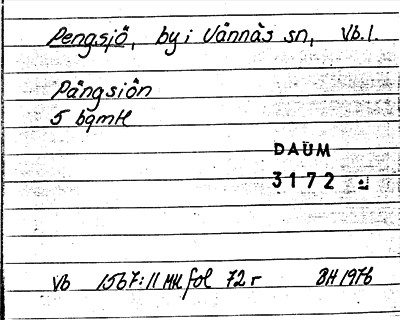 Pengsjö, by i Vännäs sn, Vb.l.
Pängsiön
5 bqmtl
DAUM
3172
Vb 1567:11 MH fol 72r BH 1976